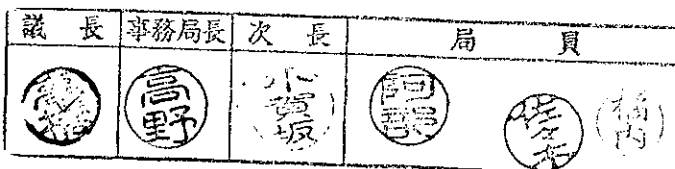 議長 事務局長 次長 局員
高野 小賀坂 阿部 佐々木 橋内